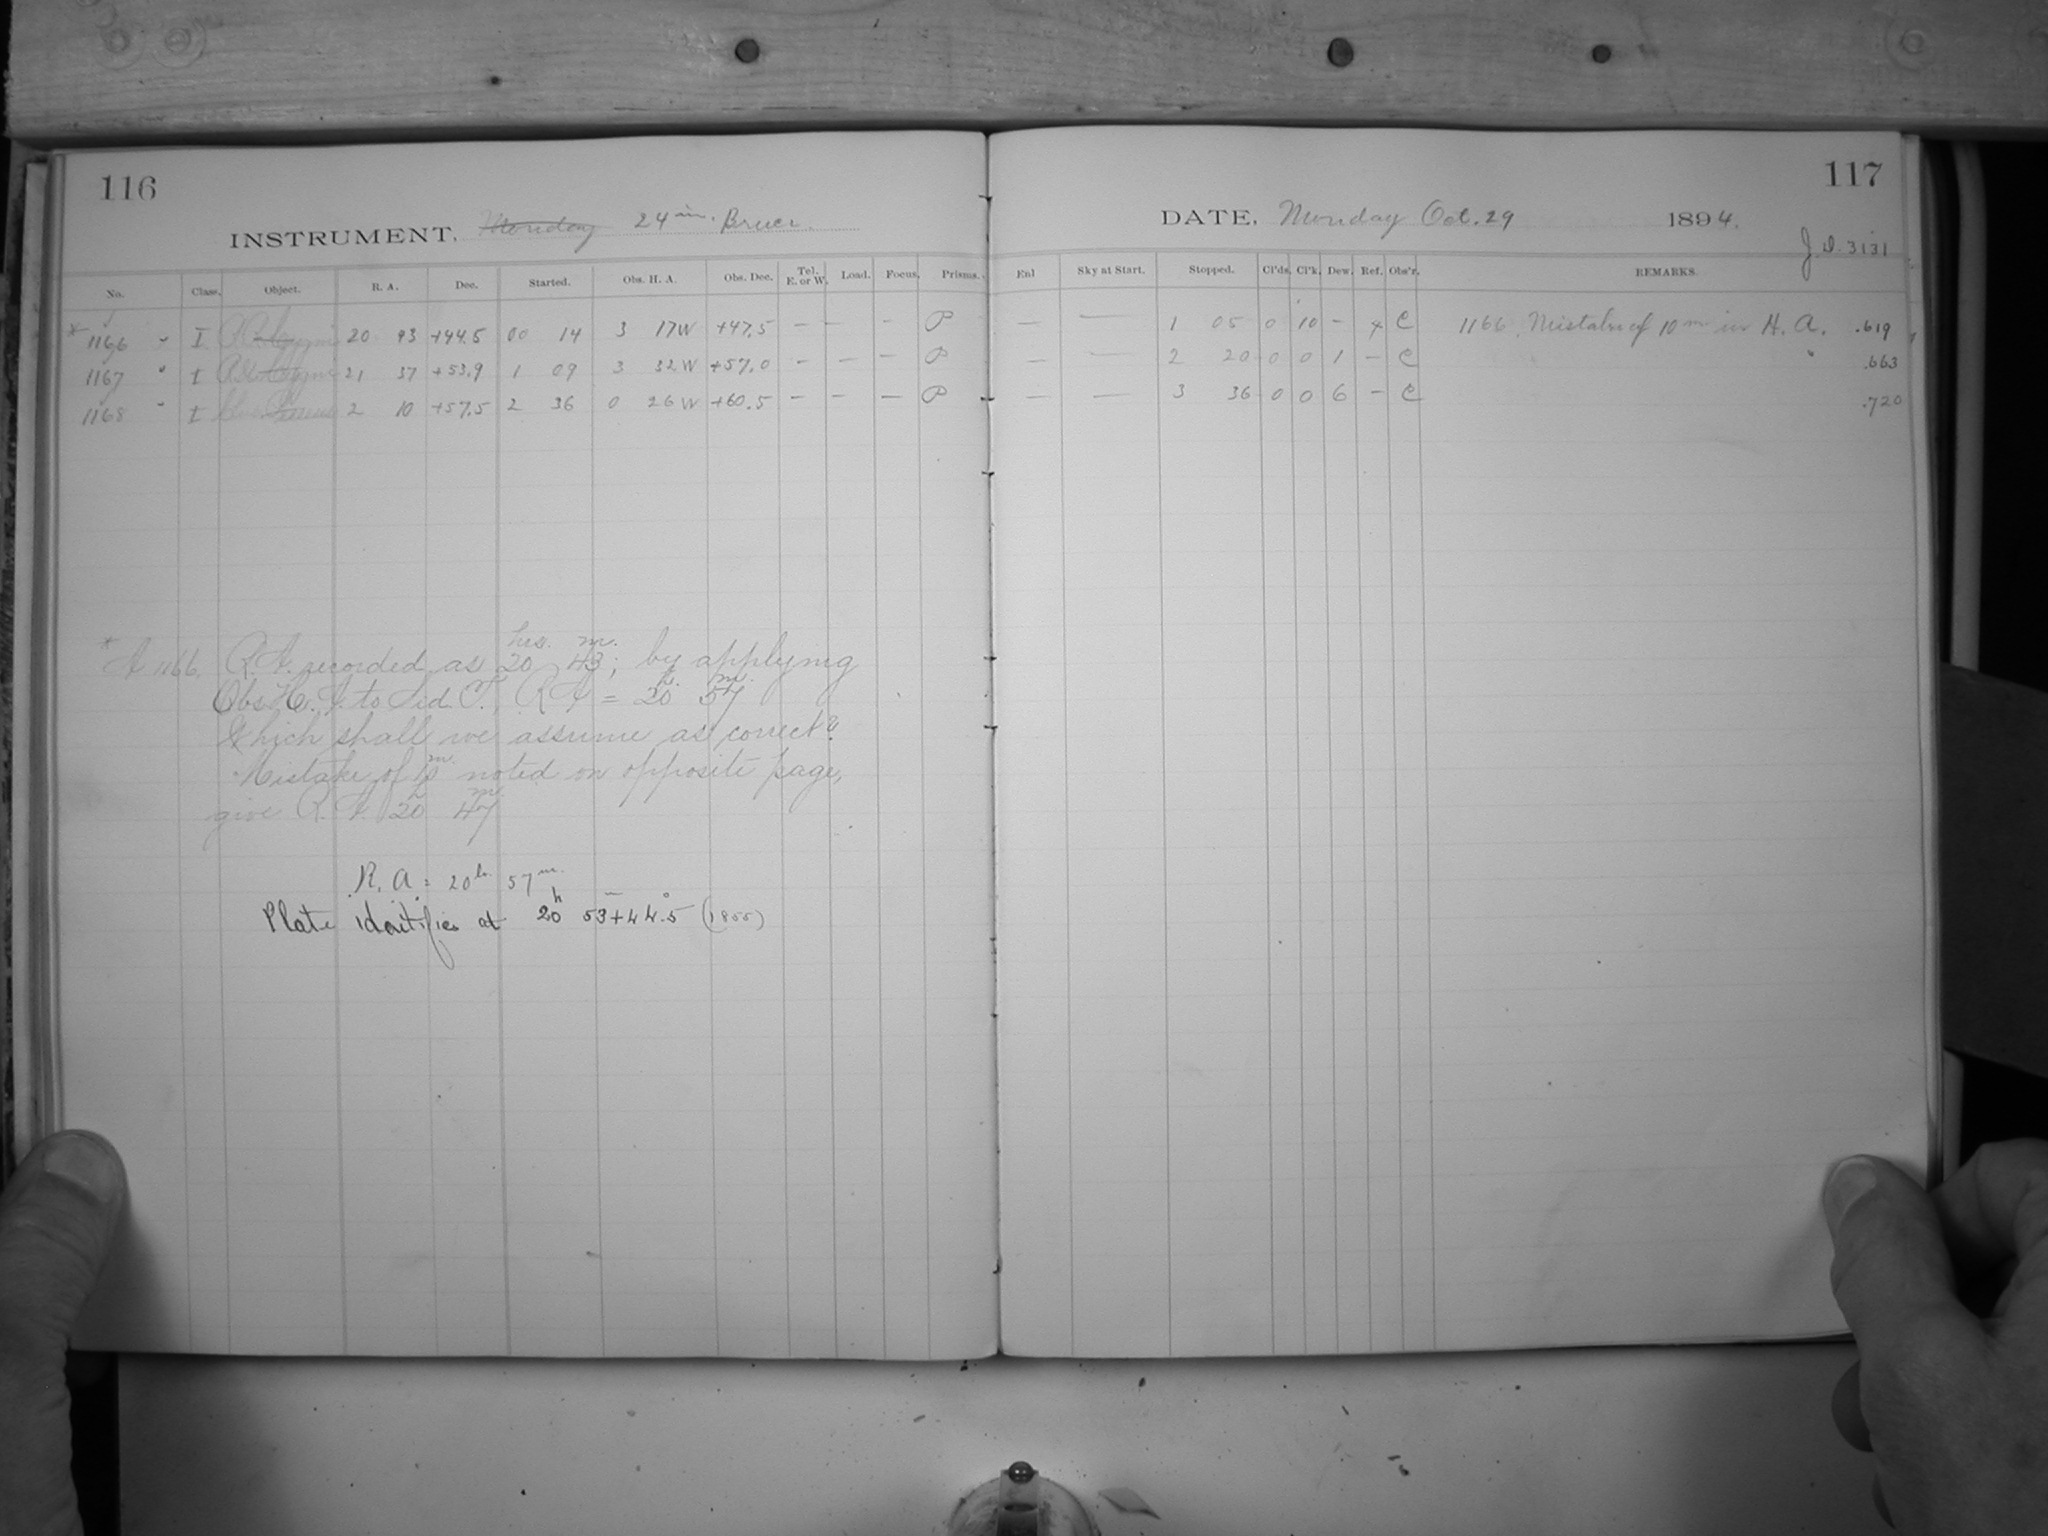 116
INSTRUMENT, Monday 24 in. Bruce.
No. Class. Object. R. A. Dec. Started. Obs. H. A. Obs. Dec. Tel. E. or W. Load. Focus. Prisms.
* 1166 I 20 43 +44.5 00 14 3 17W +47.5 — — - P
1167 " I 21 37 +53.9 1 09 3 32W +57.0 — — — P
1168 I 2 10 +57.5 2 36 0 26W +60.5 — — — P
* A 1166. R.A. recorded as 20 hrs. 43 m.; by applying
Obs. H. A. to Sid. T., R A = 20 h. 57 m.
Which shall we assume as correct?
Mistake of 10 m. noted on opposite page,
give R. A. 20 h 47 m
R. A. = 20 h. 57 m.
Plate identifies at 20 h 53 + 44°.5 (1855)
117
DATE, Monday Oct. 29 1894.
J.D. 3131
Enl Sky at Start. Stopped. Cl'ds. Cl'k. Dew. Ref. Obs'r. REMARKS.
— — 1 05 0 10 - 4 C 1166. Mistake of 10 m in H. A. .619
— — 2 20 0 0 1 — C .663
— — 3 36 0 0 6 — C .720